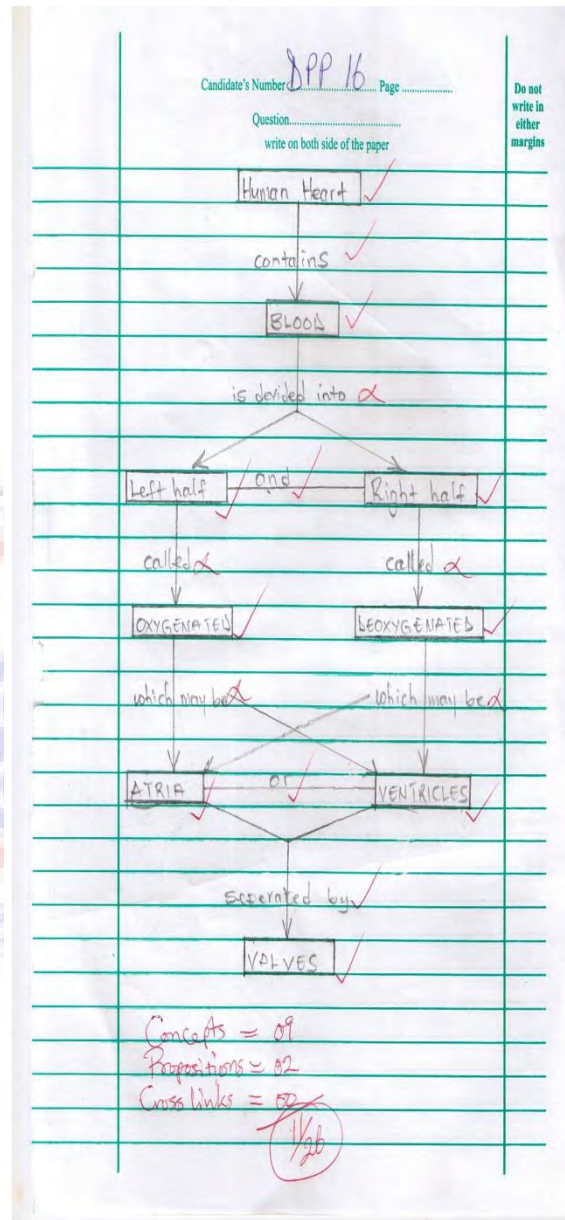 Candidate's Number DPP 16 Page
Do not
write in
either
margins
Question
write on both side of the paper
Human Heart ✓
contains ✓
BLOOD ✓
is devided into
Left half ✓ and ✓ Right half ✓
called called
OXYGENATED ✓ DEOXYGENATED ✓
which may be which may be
ATRIA ✓ or ✓ VENTRICLES ✓
seperated by ✓
VALVES ✓
Concepts = 09
Propositions = 02
Cross links =